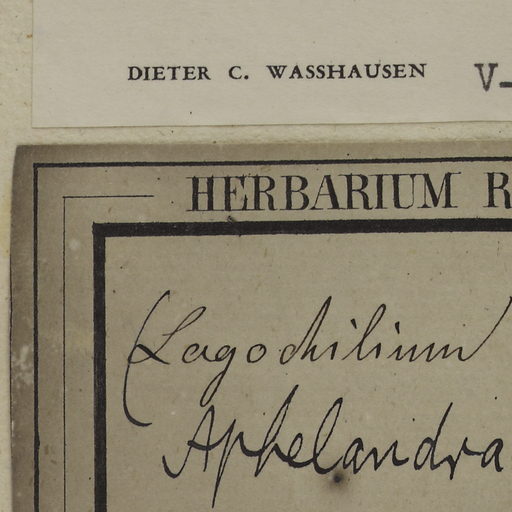 DIETER C. WASSHAUSEN V-
HERBARIUM R
(Lagochilium)
Aphelandra